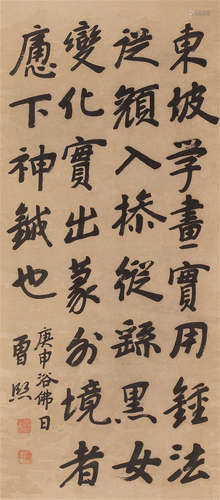 東坡学畫實用鍾法
從顏入操縱黑女
變化實出篆外境者
應下神鍼也
庚申浴佛日
曾熙